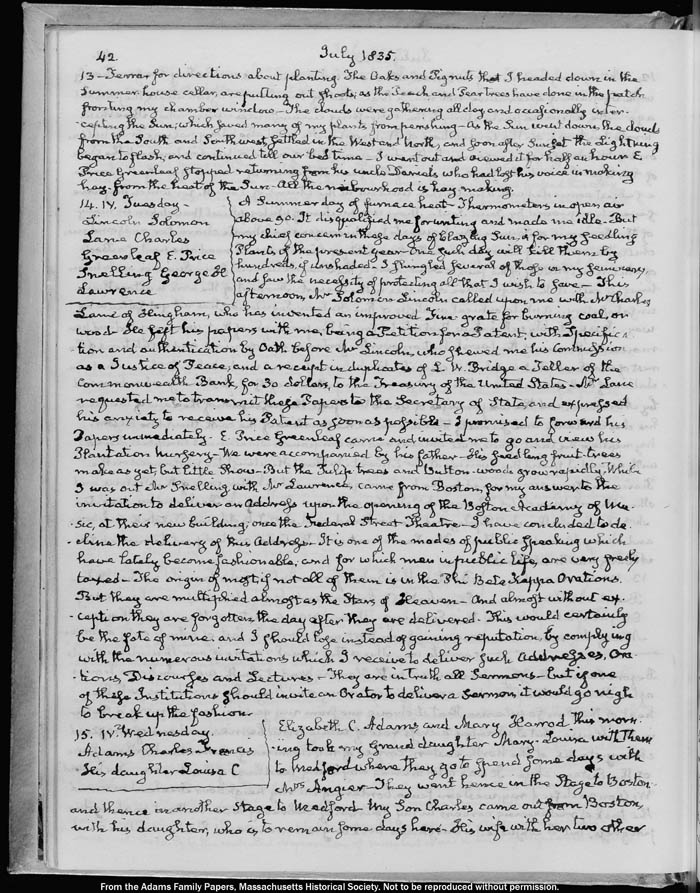 42.
July 1835.
13 — Ferrar for directions about planting. The Oaks and Pignuts that I headed down in the
Summer house cellar, are putting out shoots, as the Peach and Pear trees have done in the patch
fronting my chamber window — The clouds were gathering all day and occasionally inter-
-cepting the Sun, which saved many of my plants from perishing — As the Sun went down, the clouds
from the South and Southwest, settled in the West and North, and soon after Sunset the Lightning
began to flash, and continued till our bed time — I went out and viewed it for half an hour E
Price Greenleaf stopped returning from his uncle Daniels who had lost his voice in making
hay from the heat of the Sun — All the neighbourhood is hay making.
14. IV. Tuesday —
Lincoln Solomon
Lane Charles
Greenleaf E. Price
Snelling George H
Lawrence
A Summer day of furnace heat — Thermometers in open air
above 90. It disqualified me for writing and made me idle — But
my chief concern in these days of blazing Sun, is for my seedling
Plants of the present year — One such day will kill them by
hundreds, if unshaded — I shingled several of those in my seminary,
and saw the necessity of protecting all that I wish to save — This
afternoon, Mr Solomon Lincoln called upon me with Mr Charles
Lane of Hingham, who has invented an improved Fire grate for burning coal, or
wood — He left his papers with me, being a Petition for a Patent, with Specifica-
tion and authentication by Oath before Mr Lincoln, who shewed me his Commission
as a Justice of Peace, and a receipt in duplicates of L. W. Bridge a Teller of the
Commonwealth Bank, for 30 dollars, to the Treasury of the United States — Mr Lane
requested me to transmit these Papers to the Secretary of State, and expressed
his anxiety to receive his Patent as soon as possible — I promised to forward his
Papers immediately — E. Price Greenleaf came and invited me to go and view his
Plantation Nursery — We were accompanied by his father — His seedling fruit-trees
make as yet, but little show — But the Tulip trees and Button-woods grow rapidly. While
I was out Mr Snelling, with Mr Lawrence, came from Boston, for my answer to the
invitation to deliver an Address upon the opening of the Boston Academy of Mu-
-sic, at their new building, once the Federal Street Theatre — I have concluded to de-
-cline the delivery of this Address — It is one of the modes of public speaking which
have lately become fashionable, and for which men in public life, are very freely
taxed — The origin of most if not all of them is in the Phi Beta Kappa Orations.
But they are multiplied almost as the Stars of Heaven — And almost without ex-
-ception they are forgotten the day after they are delivered. This would certainly
be the fate of mine, and I should lose instead of gaining reputation, by complying
with the numerous invitations which I receive to deliver such Addresses, Ora-
-tions, Discourses and Lectures — They are in truth all Sermons — but if one
of these Institutions should invite an Orator to deliver a Sermon, it would go nigh
to break up the fashion.
15. IV. Wednesday.
Adams Charles Francis
His daughter Louisa C
Elizabeth C. Adams and Mary Harrod this morn-
-ing took my Grand daughter Mary-Louisa with them
to Medford where they go to spend some days with
Mrs Angier — They went hence in the Stage to Boston
and thence in another Stage to Medford My Son Charles came out from Boston,
with his daughter, who is to remain some days here — His wife with her two other
From the Adams Family Papers, Massachusetts Historical Society. Not to be reproduced without permission.